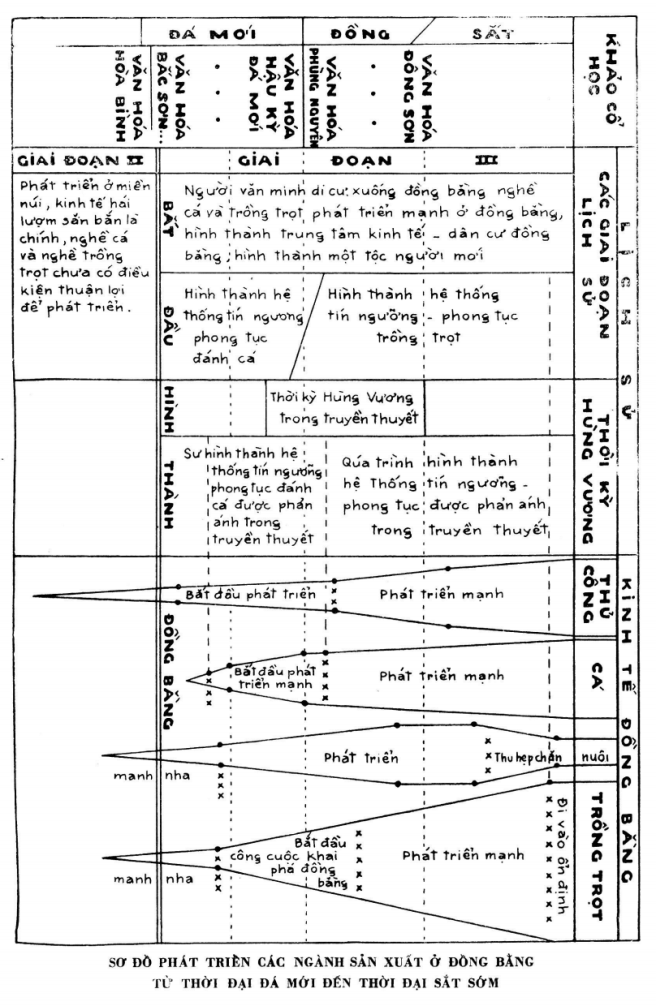 ĐÁ MỚI
ĐỒNG
SẮT
KHẢO CỔ HỌC
VĂN HÓA
HOÀ BÌNH
VĂN HÓA
BẮC SƠN...
VĂN HÓA
HẬU KỲ
ĐÁ MỚI
VĂN HOÁ
PHÙNG NGUYÊN
VĂN HÓA
ĐÔNG SƠN
GIAI ĐOẠN II
GIAI ĐOẠN III
CÁC GIAI ĐOẠN
LỊCH SỬ
LỊCH SỬ
Phát triển ở miền
núi, kinh tế hái
lượm săn bắn là
chính, nghề cá
và nghề trồng
trọt chưa có điều
kiện thuận lợi
để phát triển.
BẮT ĐẦU HÌNH THÀNH ĐỒNG BẰNG
Người văn minh di cư xuống đồng bằng nghề
cá và trồng trọt phát triển mạnh ở đồng bằng,
hình thành trung tâm kinh tế - dân cư đồng
bằng; hình thành một tộc người mới
Hình thành hệ
thống tín ngương
phong tục
đánh cá
Hình thành hệ thống
tín ngưỡng - phong tục
trồng trọt
THỜI KỲ
HÙNG VƯƠNG
Thời kỳ Hùng Vương
trong truyền thuyết
Sự hình thành hệ
thống tín ngương
phong tục đánh
cá được phản
ánh trong
truyền thuyết
Qúa trình hình thành
hệ Thống tín ngưong -
phong tục được phản ánh
trong truyền thuyết
KINH TẾ ĐỒNG BẰNG
THỦ
CÔNG
Bắt đầu phát triển
Phát triển mạnh
CÁ
Bắt đầu phát
triển mạnh
Phát triển mạnh
manh nha
Phát triển
Thu hẹp chăn
nuôi
TRỒNG TRỌT
manh nha
Bắt đầu
công cuộc khai
phá đồng
bằng
Phát triển mạnh
Đi vào ổn định
SƠ ĐỒ PHÁT TRIỂN CÁC NGÀNH SẢN XUẤT Ở ĐỒNG BẰNG
TỪ THỜI ĐẠI ĐÁ MỚI ĐẾN THỜI ĐẠI SẮT SỚM